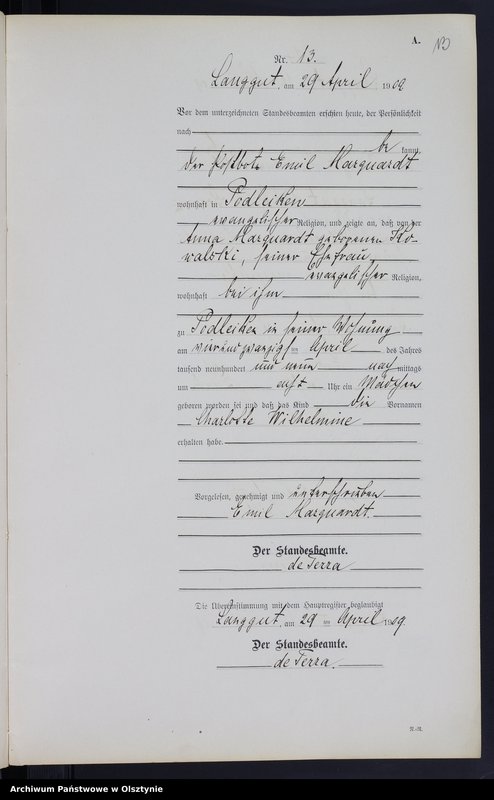 A.
13
Nr. 13.
Langgut, am 29 April 1909
Vor dem unterzeichneten Standesbeamten erschien heute, der Persönlichkeit
nach
be kannt,
der Postbote Emil Marquardt
wohnhaft in Podleiken
evangelischer Religion, und zeigte an, daß von der
Anna Marquardt geborenen Ko-
walski, seiner Ehefrau
evangelischer Religion,
wohnhaft bei ihm
zu Podleiken in seiner Wohnung
am vierundzwanzigsten April des Jahres
tausend neunhundert und neun nach mittags
um acht Uhr ein Mädchen
geboren worden sei und daß das Kind die Vornamen
Charlotte Wilhelmine
erhalten habe.
Vorgelesen, genehmigt und unterschrieben
Emil Marquardt.
Der Standesbeamte.
de Terra
Die Übereinstimmung mit dem Hauptregister beglaubigt
Langgut, am 29 ten April 1909
Der Standesbeamte.
de Terra.
Archiwum Państwowe w Olsztynie